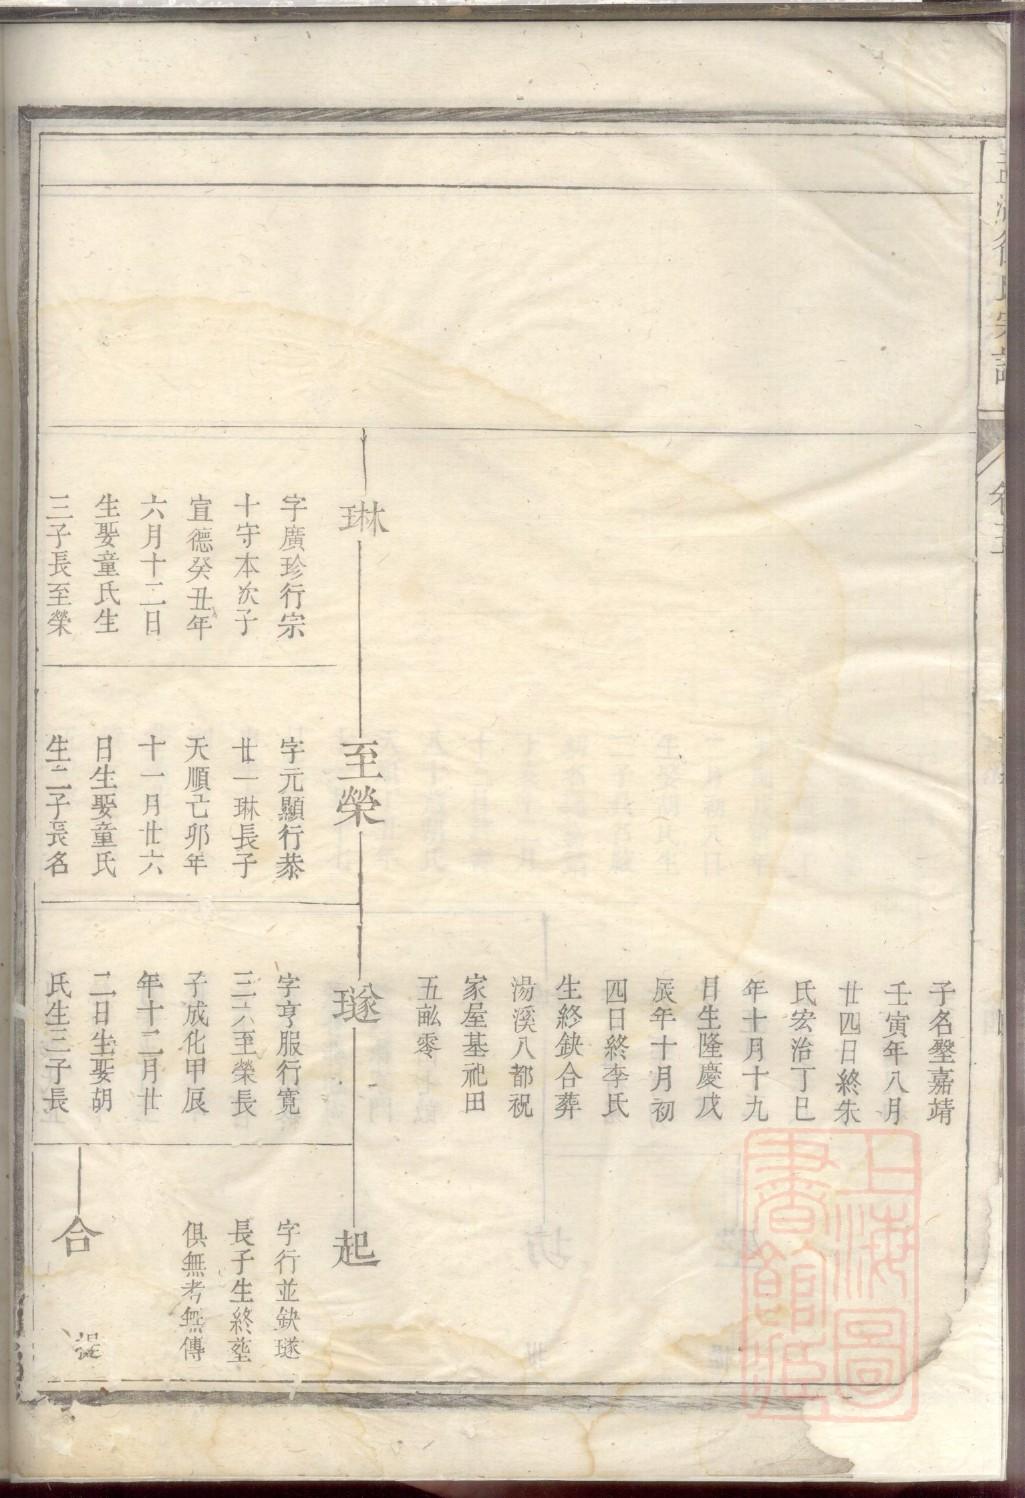 徐氏宗譜
卷五
子名壂嘉靖
壬寅年八月
廿四日終朱
氏宏治丁巳
年十月十九
日生隆慶戊
辰年十月初
四日終李氏
生終鈌合葬
湯溪八都祝
家屋基祀田
五畆零
琳
字廣珍行宗
十守本次子
宣德癸丑年
六月十二日
生娶童氏生
三子長至榮
至榮
字元顯行㳟
廿一琳長子
天順己卯年
十一月廿六
日生娶童氏
生二子長名
璲
字亨服行寬
三六至榮長
子成化甲辰
年十二月廿
二日生娶胡
氏生三子長
起
字行並鈌璲
長子生終塟
俱無考無傳
合
上海圖
書館藏